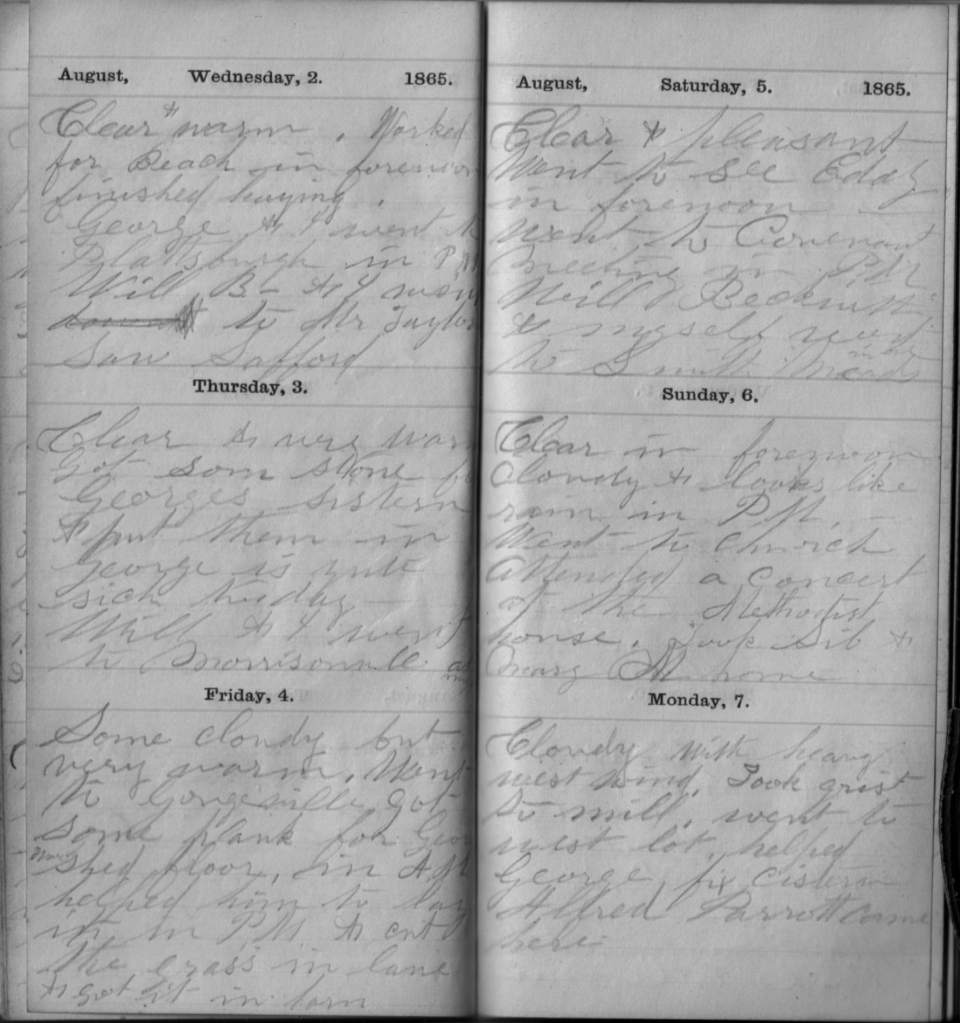 August, Wednesday, 2. 1865.
Clear & warm. Worked
for Beach in forenoon
finished haying.
George & I went to
Plattsburgh in PM
Will B- & I went
to Mr Taylor
Saw Safford
Thursday, 3.
Clear & very warm
Got som stone fo
Georges sistern
& put them in
George is quite
sick to day
Will & I went
to Morrisonville
Friday, 4.
Some cloudy but
very warm. Went
to Gongeville got
some plank for Geor
shed floor, in AM
helped him to lay
it in PM & cut
the grass in lane
& got it in barn
August, Saturday, 5. 1865.
Clear & pleasant
Went to see Eday
in forenoon
Went to Covenant
meeting in PM
Will Beckwith
& myself
to Smith Meads
Sunday, 6.
Clear in forenoon
Cloudy & looks like
rain in PM. -
Went to church
attended a concert
at the Methodist
house. Took Sib &
Mary M home
Monday, 7.
Cloudy with heavy
west wind. Took grist
to mill, went to
west lot, helped
George fix cistern
Alfred Parrott came
here